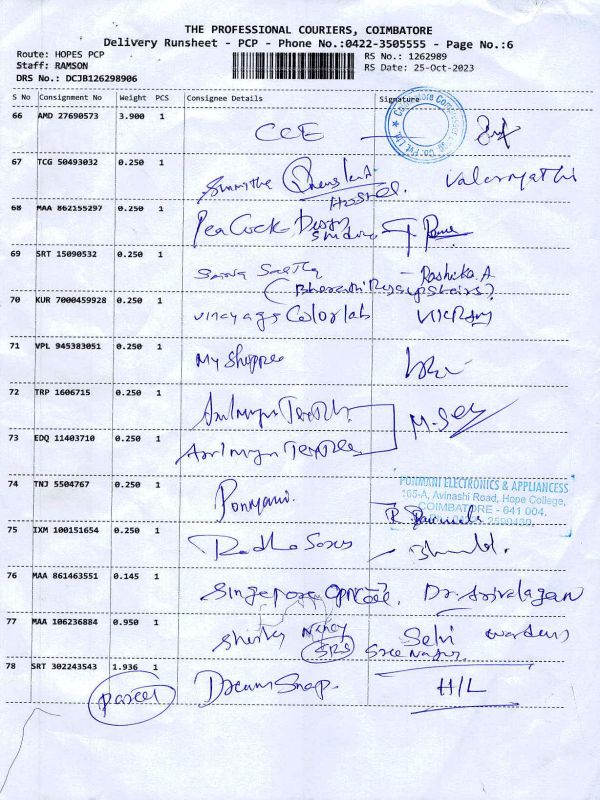 THE PROFESSIONAL COURIERS, COIMBATORE
Delivery Runsheet - PCP - Phone No.:0422-3505555 - Page No.:6
Route: HOPES PCP RS No.: 1262989
Staff: RAMSON RS Date: 25-Oct-2023
DRS No.: DCJB126298906
S No Consignment No Weight PCS Consignee Details Signature
66 AMD 27690573 3.900 1 CCE
67 TCG 50493032 0.250 1 Hostel. Valarmathi
68 MAA 862155297 0.250 1 Pea Cock Design
69 SRT 15090532 0.250 1 Rashika A
70 KUR 7000459928 0.250 1 Vinayaga Color lab
71 VPL 945383051 0.250 1 My Shoppee
72 TRP 1606715 0.250 1
73 EDQ 11403710 0.250 1
74 TNJ 5504767 0.250 1 Ponmani.
PONMANI ELECTRONICS & APPLIANCESS
105-A, Avinashi Road, Hope College,
COIMBATORE - 641 004.
75 IXM 100151654 0.250 1
76 MAA 861463551 0.145 1 Singapore
77 MAA 106236884 0.950 1 Selvi
SRS Sree Nagar
78 SRT 302243543 1.936 1 Dream Snap. H/L
Parcel